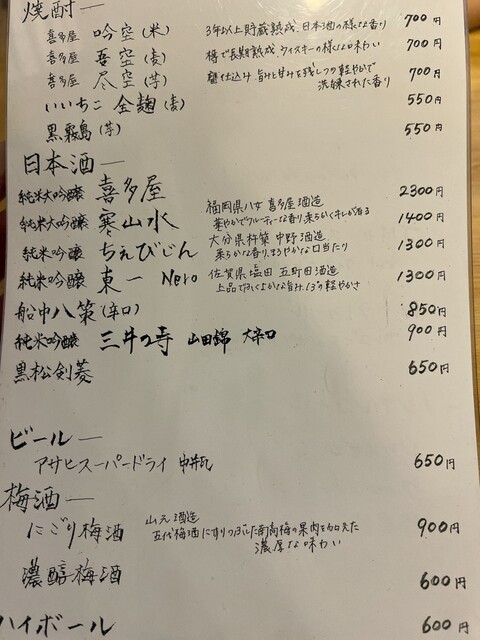 焼酎 —
喜多屋 吟空(米) 3年以上貯蔵熟成、日本酒の様な香り 700円
喜多屋 吾空(麦) 樽で長期熟成、ウイスキーの様な味わい 700円
喜多屋 尽空(芋) 甕仕込み、旨みと甘みを残しつつ軽やかで 700円
洗練された香り
いいちこ 全麹(麦) 550円
黒霧島(芋) 550円
日本酒 —
純米大吟醸 喜多屋 福岡県八女 喜多屋酒造 2300円
華やかでフルーティーな香り、柔らかくキレが有る
純米大吟醸 寒山水 1400円
大分県杵築 中野酒造
純米吟醸 ちえびじん 柔らかな香り、まろやかな口当たり 1300円
純米吟醸 東一 Nero 佐賀県塩田 五町田酒造 1300円
上品でふくよかな旨み、13°の軽やかさ
船中八策(辛口) 850円
純米吟醸 三井の寿 山田錦 大辛口 900円
黒松剣菱 650円
ビール —
アサヒスーパードライ 中瓶 650円
梅酒 —
にごり梅酒 山元酒造 900円
五代梅酒にすりつぶした南高梅の果肉を加えた
濃厚な味わい
濃醇梅酒 600円
ハイボール 600円